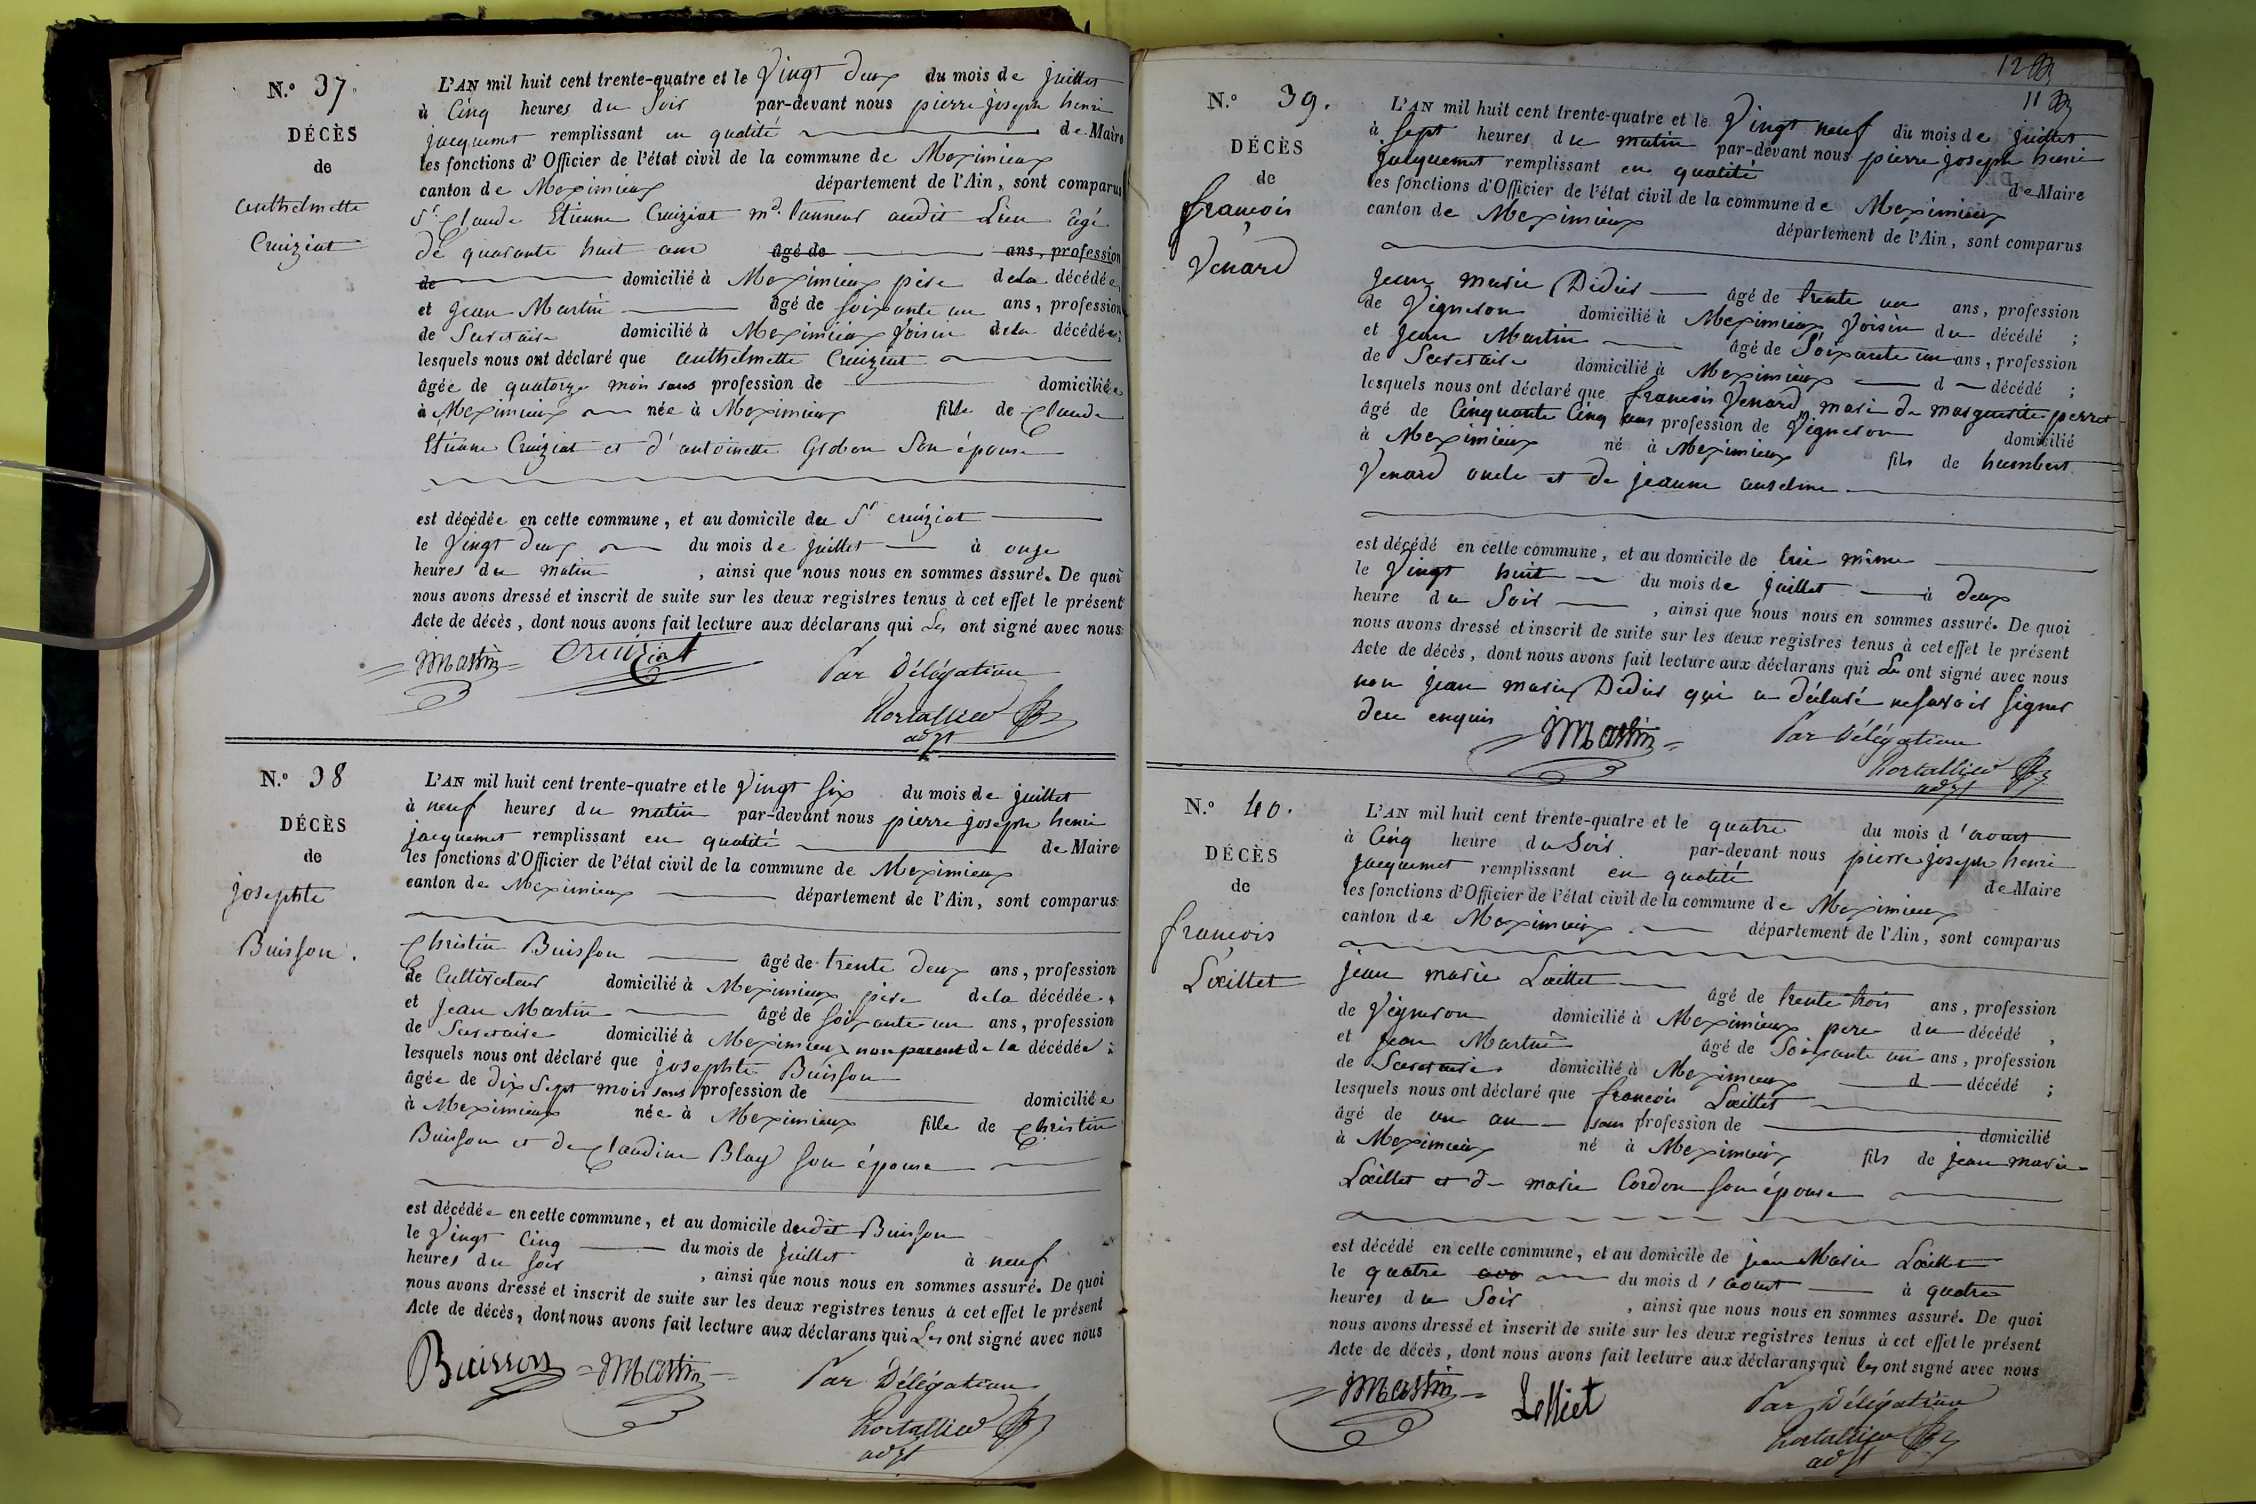 N.° 37.
DÉCÈS
de
anthelmette
Cruiziat
L'AN mil huit cent trente-quatre et le Vingt deux du mois de juillet
à Cinq heures du Soir par-devant nous pierre joseph henri
jacquemet remplissant en qualité de Maire
les fonctions d'Officier de l'état civil de la commune de Meximieux
canton de Meximieux département de l'Ain, sont comparus
Sr Claude Etienne Cruiziat md. tanneur audit Lieu âgé
de quarante huit ans âgé de ans, profession
de domicilié à Meximieux père dela décédée,
et jean Martin âgé de soixante un ans, profession
de Secretaire domicilié à Meximieux Voisin dela décédée;
lesquels nous ont déclaré que anthelmette Cruiziat
âgée de quatorze mois sans profession de domiciliée
à Meximieux née à Meximieux fille de Claude
Etienne Cruiziat et d'antoinette Grobon Son épouse
est décédée en cette commune, et au domicile du Sr cruiziat
le Vingt deux du mois de juillet à onze
heures du matin, ainsi que nous nous en sommes assuré. De quoi
nous avons dressé et inscrit de suite sur les deux registres tenus à cet effet le présent
Acte de décès, dont nous avons fait lecture aux déclarans qui Les ont signé avec nous.
JMartin Cruiziat Par Délégation
adjt
N.° 38
DÉCÈS
de
josephte
Buisson.
L'AN mil huit cent trente-quatre et le Vingt six du mois de juillet
à neuf heures du matin par-devant nous pierre joseph henri
jacquemet remplissant en qualité de Maire
les fonctions d'Officier de l'état civil de la commune de Meximieux
canton de Meximieux département de l'Ain, sont comparus
Christin Buisson âgé de trente deux ans, profession
de Cultivateur domicilié à Meximieux père dela décédée,
et jean Martin âgé de soixante un ans, profession
de Secretaire domicilié à Meximieux non parent de la décédée;
lesquels nous ont déclaré que josephte Buisson
âgée de dix Sept mois sans profession de domiciliée
à Meximieux née à Meximieux fille de Christin
Buisson et de Claudine Blay son épouse
est décédée en cette commune, et au domicile dudit Buisson
le Vingt Cinq du mois de juillet à neuf
heures du soir, ainsi que nous nous en sommes assuré. De quoi
nous avons dressé et inscrit de suite sur les deux registres tenus à cet effet le présent
Acte de décès, dont nous avons fait lecture aux déclarans qui Les ont signé avec nous
Buisson JMartin Par Délégation
adjt
12
11
N.° 39.
DÉCÈS
de
françois
Venard
L'AN mil huit cent trente-quatre et le Vingt neuf du mois de juillet
à Sept heures du matin par-devant nous pierre joseph henri
jacquemet remplissant en qualité de Maire
les fonctions d'Officier de l'état civil de la commune de Meximieux
canton de Meximieux département de l'Ain, sont comparus
jean marie Didier âgé de trente un ans, profession
de Vigneron domicilié à Meximieux Voisin du décédé;
et jean Martin âgé de Soixante un ans, profession
de Secretaire domicilié à Meximieux d décédé;
lesquels nous ont déclaré que françois Venard mari de marguerite perret
âgé de Cinquante Cinq ans profession de Vigneron domicilié
à Meximieux né à Meximieux fils de humbert
Venard et de jeanne anselme
est décédé en cette commune, et au domicile de lui même
le Vingt huit du mois de juillet à deux
heure du Soir, ainsi que nous nous en sommes assuré. De quoi
nous avons dressé et inscrit de suite sur les deux registres tenus à cet effet le présent
Acte de décès, dont nous avons fait lecture aux déclarans qui Les ont signé avec nous
non jean marie Didier qui a déclaré ne Savoir Signer
de ce enquis JMartin Par Délégation
adjt
N.° 40.
DÉCÈS
de
françois
Lœillet
L'AN mil huit cent trente-quatre et le quatre du mois d'aoust
à Cinq heure du Soir par-devant nous pierre joseph henri
jacquemet remplissant en qualité de Maire
les fonctions d'Officier de l'état civil de la commune de Meximieux
canton de Meximieux département de l'Ain, sont comparus
jean marie Lœillet âgé de trente trois ans, profession
de Vigneron domicilié à Meximieux pere du décédé,
et jean Martin âgé de Soixante un ans, profession
de Secretaire domicilié à Meximieux d décédé;
lesquels nous ont déclaré que françois Lœillet
âgé de un an sans profession de domicilié
à Meximieux né à Meximieux fils de jean marie
Lœillet et de marie Cordon son épouse
est décédé en cette commune, et au domicile de jean Marie Lœillet
le quatre du mois d'aoust à quatre
heures du Soir, ainsi que nous nous en sommes assuré. De quoi
nous avons dressé et inscrit de suite sur les deux registres tenus à cet effet le présent
Acte de décès, dont nous avons fait lecture aux déclarans qui les ont signé avec nous
JMartin Par Délégation
adjt